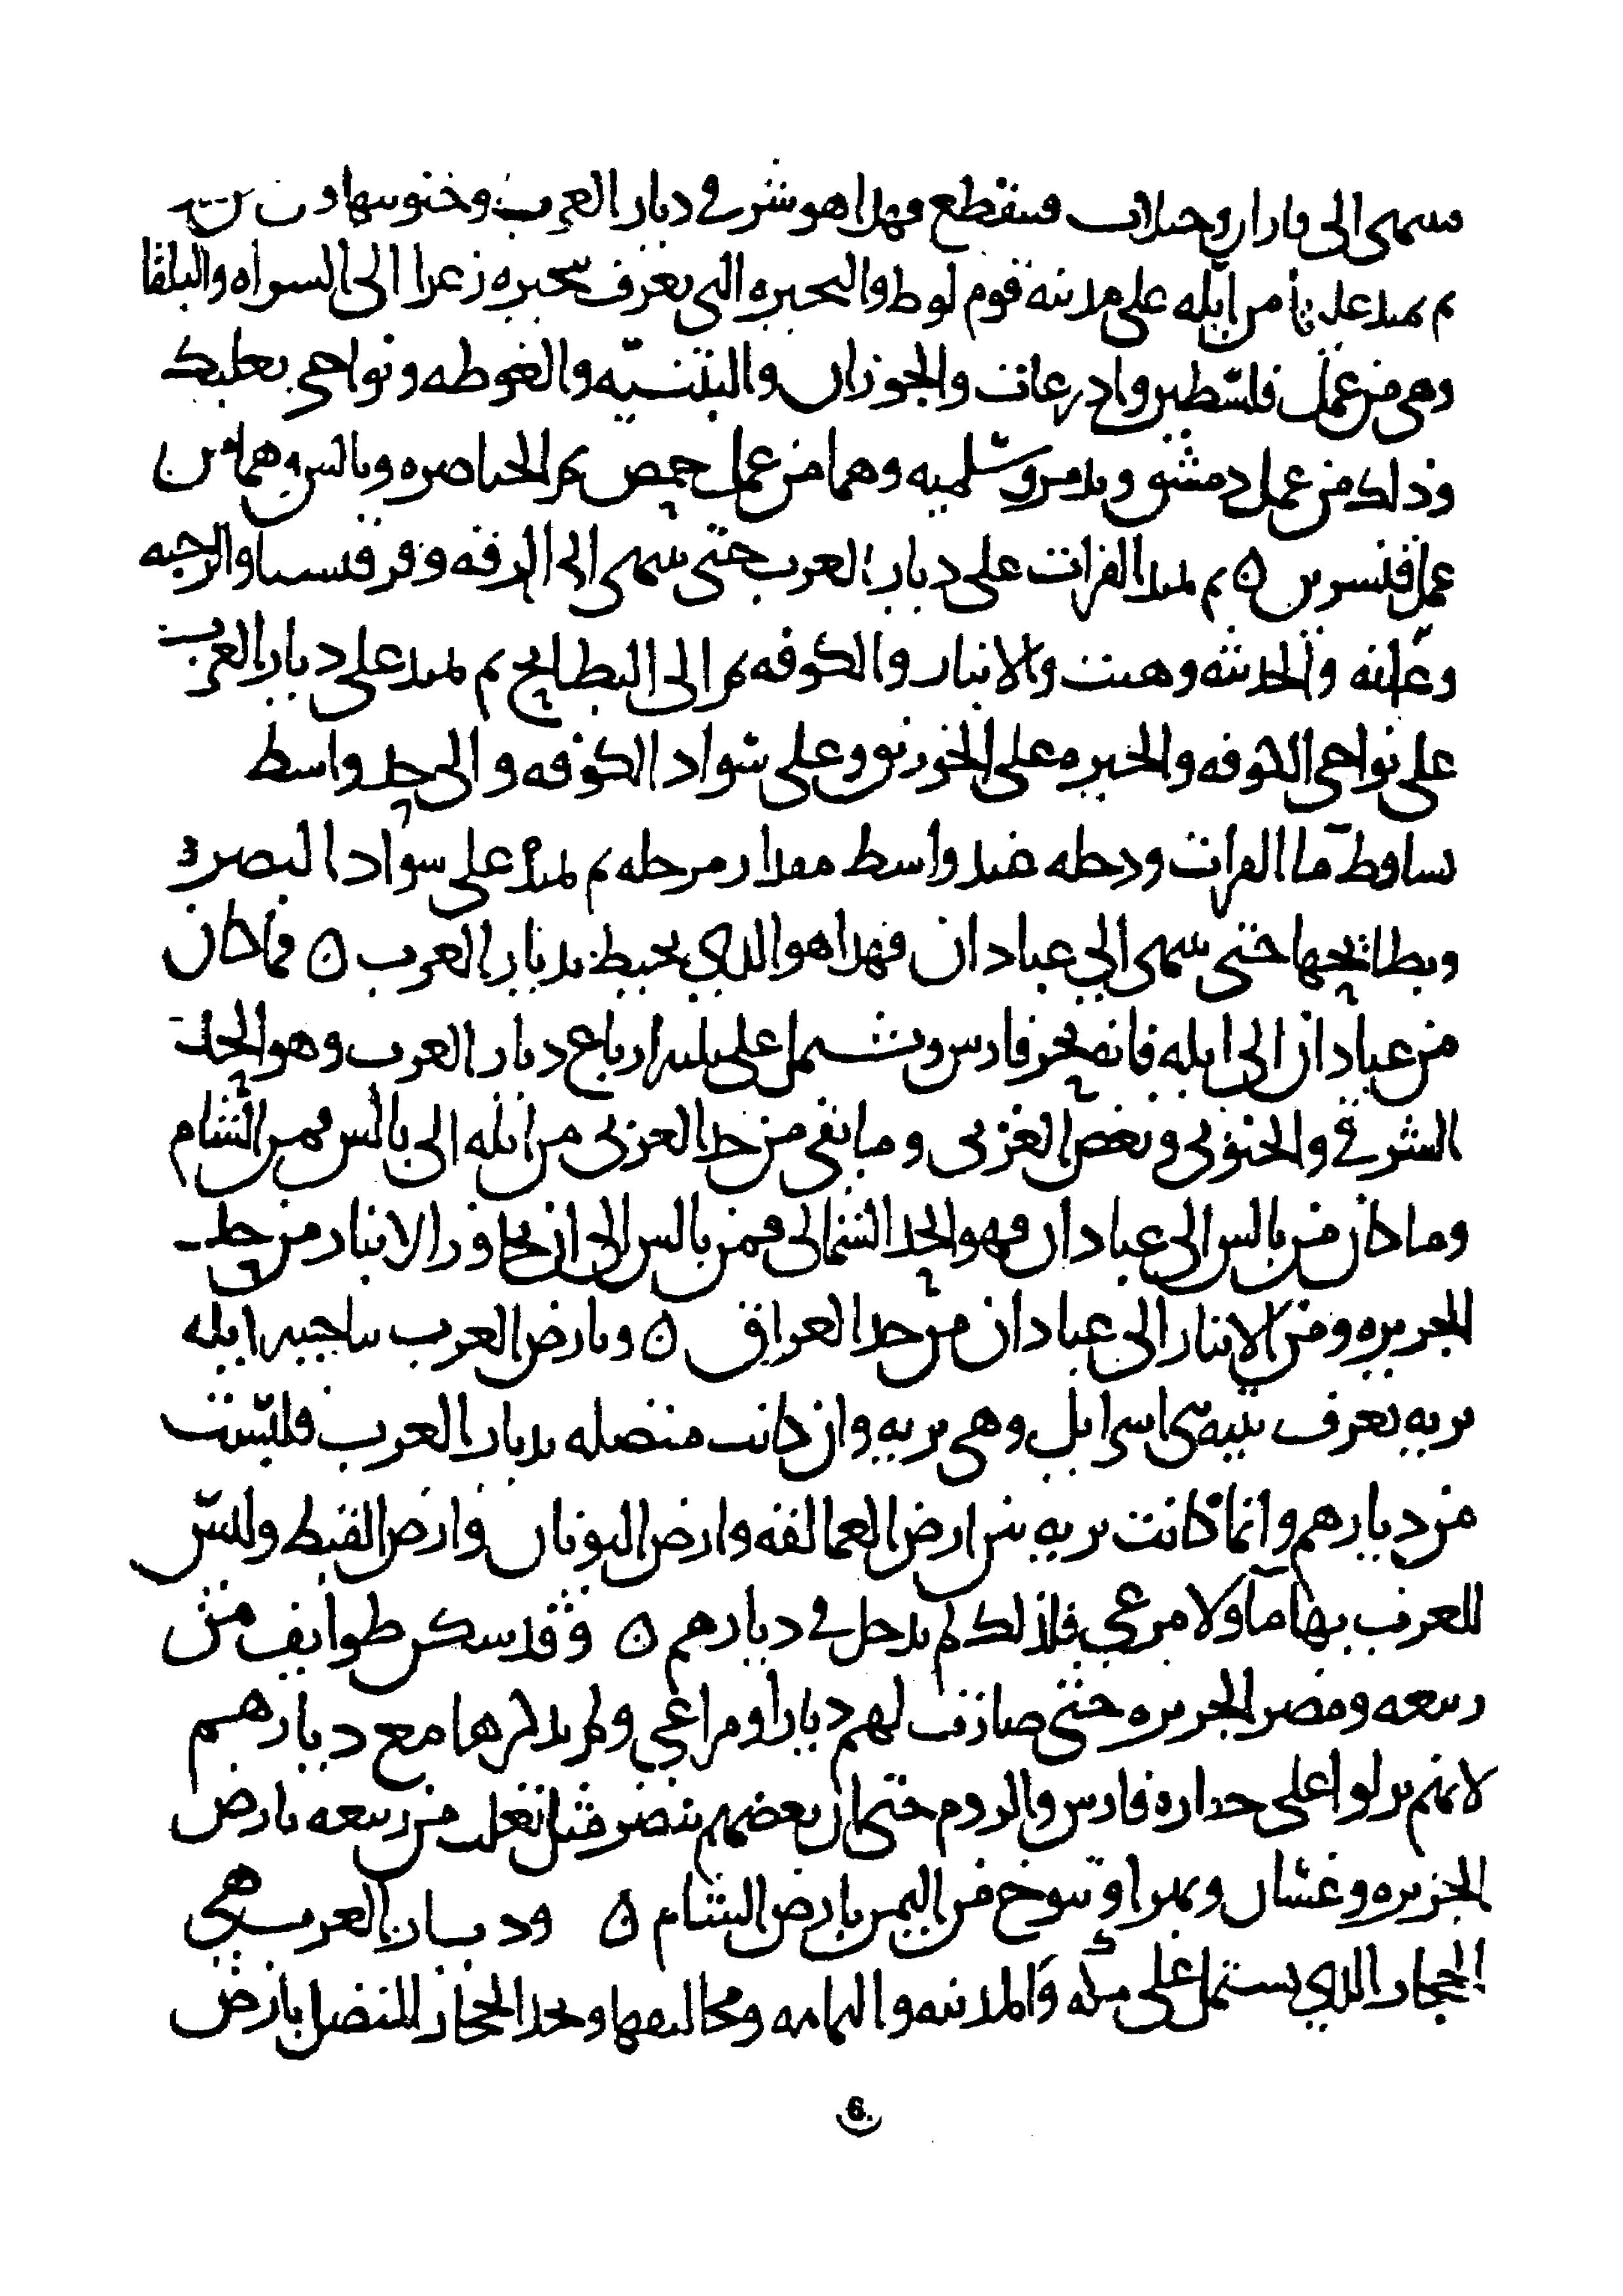 فينتهى الى فاران وجبلان فينقطع فهذا هو شرقي ديار العرب وجنوبيها و
ثم يمتد عليها من ايله على مدينه قوم لوط والبحيره التي تعرف ببحيره زغر الى الشراه والبلقا
وهي من عمل فلسطين واذرعات والجوزان والبثنيه والغوطه ونواحي بعلبك
وذلك من عمل دمشق وتدمر وسلميه وهما من عمل حمص ثم الخناصره وبالس وهما من
عمل قنسرين ٥ ثم يمتد الفرات على ديار العرب حتى ينتهى الى الرقه وقرقيسيا والرحبه
وعانه والحديثه وهيت والانبار والكوفه ثم الى البطايح ثم يمتد على ديار العرب
على نواحي الكوفه والحيره على الخورنق وعلى سواد الكوفه والى حد واسط
ما الفرات ودجله عند واسط مقدار مرحله ثم يمتد على سواد البصره
وبطائحها حتى ينتهى الى عبادان فهذا هو الذي يحيط بديار العرب ٥ فما كان
من عبادان الى ايله فانه بحر فارس ويشتمل على ثلثه ارباع ديار العرب وهو الحد
الشرقي والجنوبي وبعض الغربي وما بقي من حد الغربي من ايله الى بالس فمن الشام
وما كان من بالس الى عبادان فهو الحد الشمالي فمن بالس الى ان تجاوز الانبار من حد
الجزيره ومن الانبار الى عبادان من حد العراق ٥ وبارض العرب بناحيه ايله
بريه تعرف بتيه بني اسرايل وهي بريه وان كانت متصله بديار العرب فليست
من ديارهم وانما كانت بريه بين ارض العمالقه وارض اليونان وارض القبط وليس
للعرب بها ماء ولا مرعى فلذلك لم يدخل في ديارهم ٥ وقد سكن طوايف من
ربيعه ومضر الجزيره حتى صارت لهم ديارا ومراعي ولم نذكرها مع ديارهم
لانهم نزلوا على خفاره فارس والروم حتى ان بعضهم تنصر مثل تغلب من ربيعه بارض
الجزيره وغسان وبهرا وتنوخ من اليمن بارض الشام ٥ وديار العرب هي
الحجاز الذي يشتمل على مكه والمدينه واليمامه ومخاليفها ونجد الحجاز المتصل بارض
6